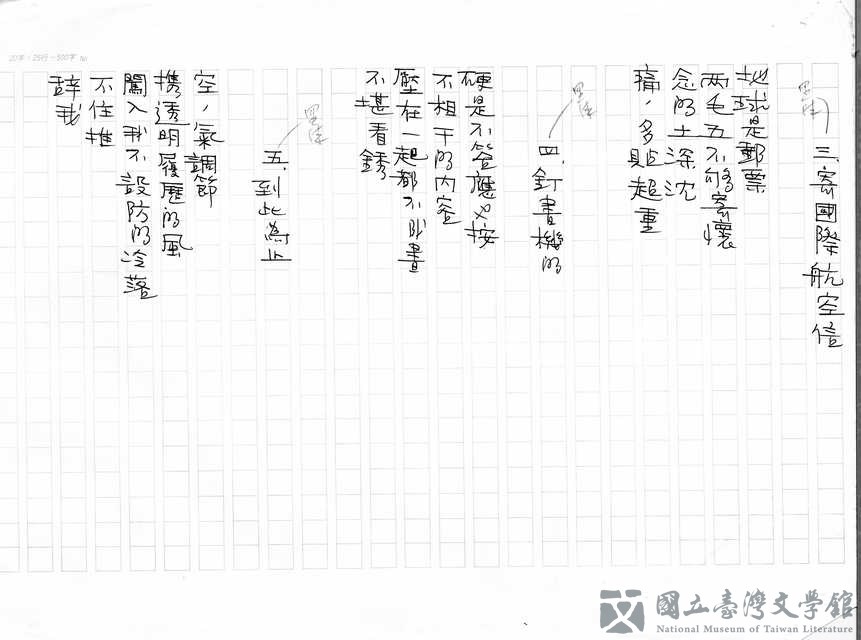 20字×25行=500字
黑体
三、寄國際航空信
地球是郵票
兩毛五不够寄懷
念的土深沈
痛,多貼超重
黑体
四、釘書機的
硬是不答應也按
不相干的内容
壓在一起都不成書
不堪看銹
黑体
五、到此為止
空,氣調節
携透明履歷的風
闖入我不設防的冷落
不住推
辞我
國立臺灣文學館
National Museum of Taiwan Literature